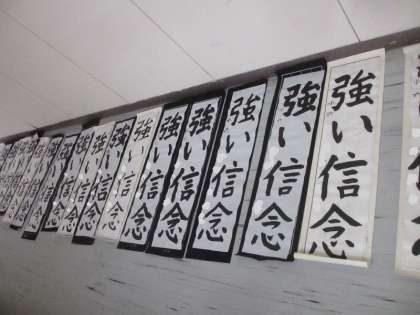 強い信念
強い信念
強い信念
強い信念
強い信念
強い信念
強い信念
強い信念
強い信念
強い信念
強い信念
強い信念